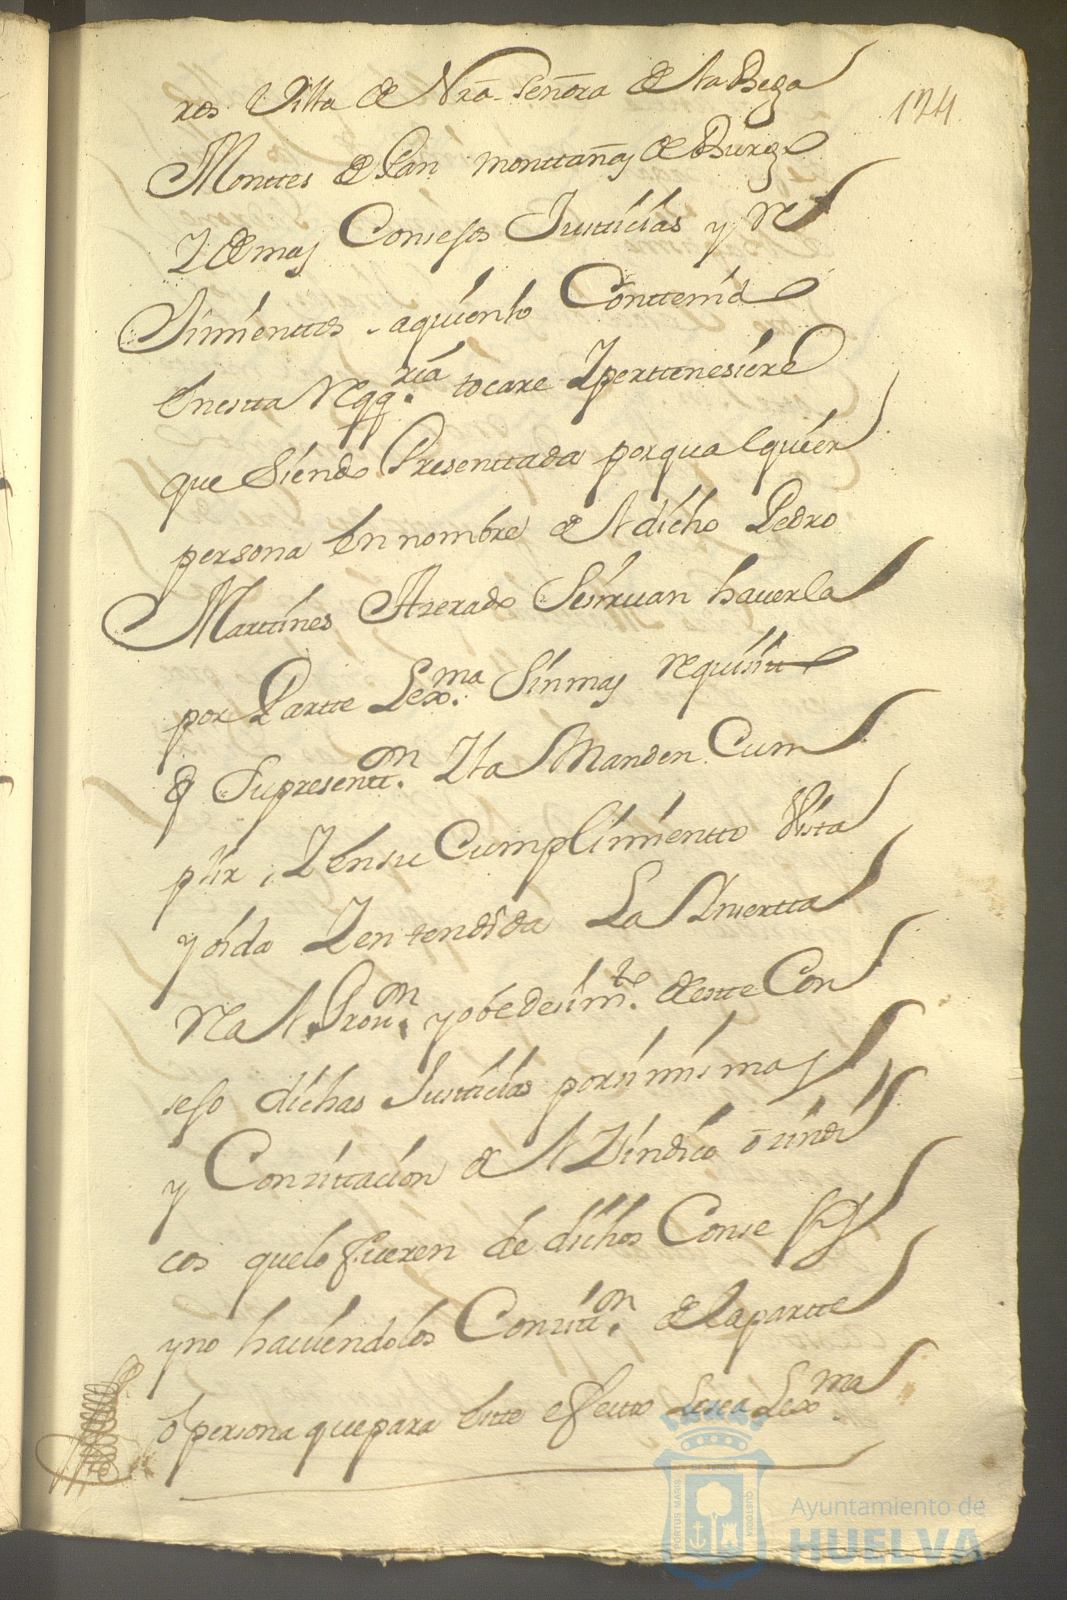 res Villa de Nrã Señora de la Bega
124
Monttes de Pan monttañas de Burgs
Y demas Consejos Justicias y Re
Jimienttos aquien lo Conttenido
En estta Reqq.ria tocare Y perttenesiere
que Siendo Presenttada por qualquier
persona En nombre del dicho Pedro
Marttines Azerado Se siruan hauerla
por Partte Lex.ma Sin mas requisitto
q Su presentt.on Y la Manden Cum
plir, Y En su Cumplimientto Vista
y oida Y entendida La Ynsertta
Real Prou.on y obedesim.to de estte Con
sejo dichas Justicias por si mismas
y Consittacion del Sindico o sindi
cos que lo fueren de dichos Consejos
y no hauiendolos Consitt.on de la partte
o persona que para Este efecto Lesea Lex.ma
Ayuntamiento de
HUELVA